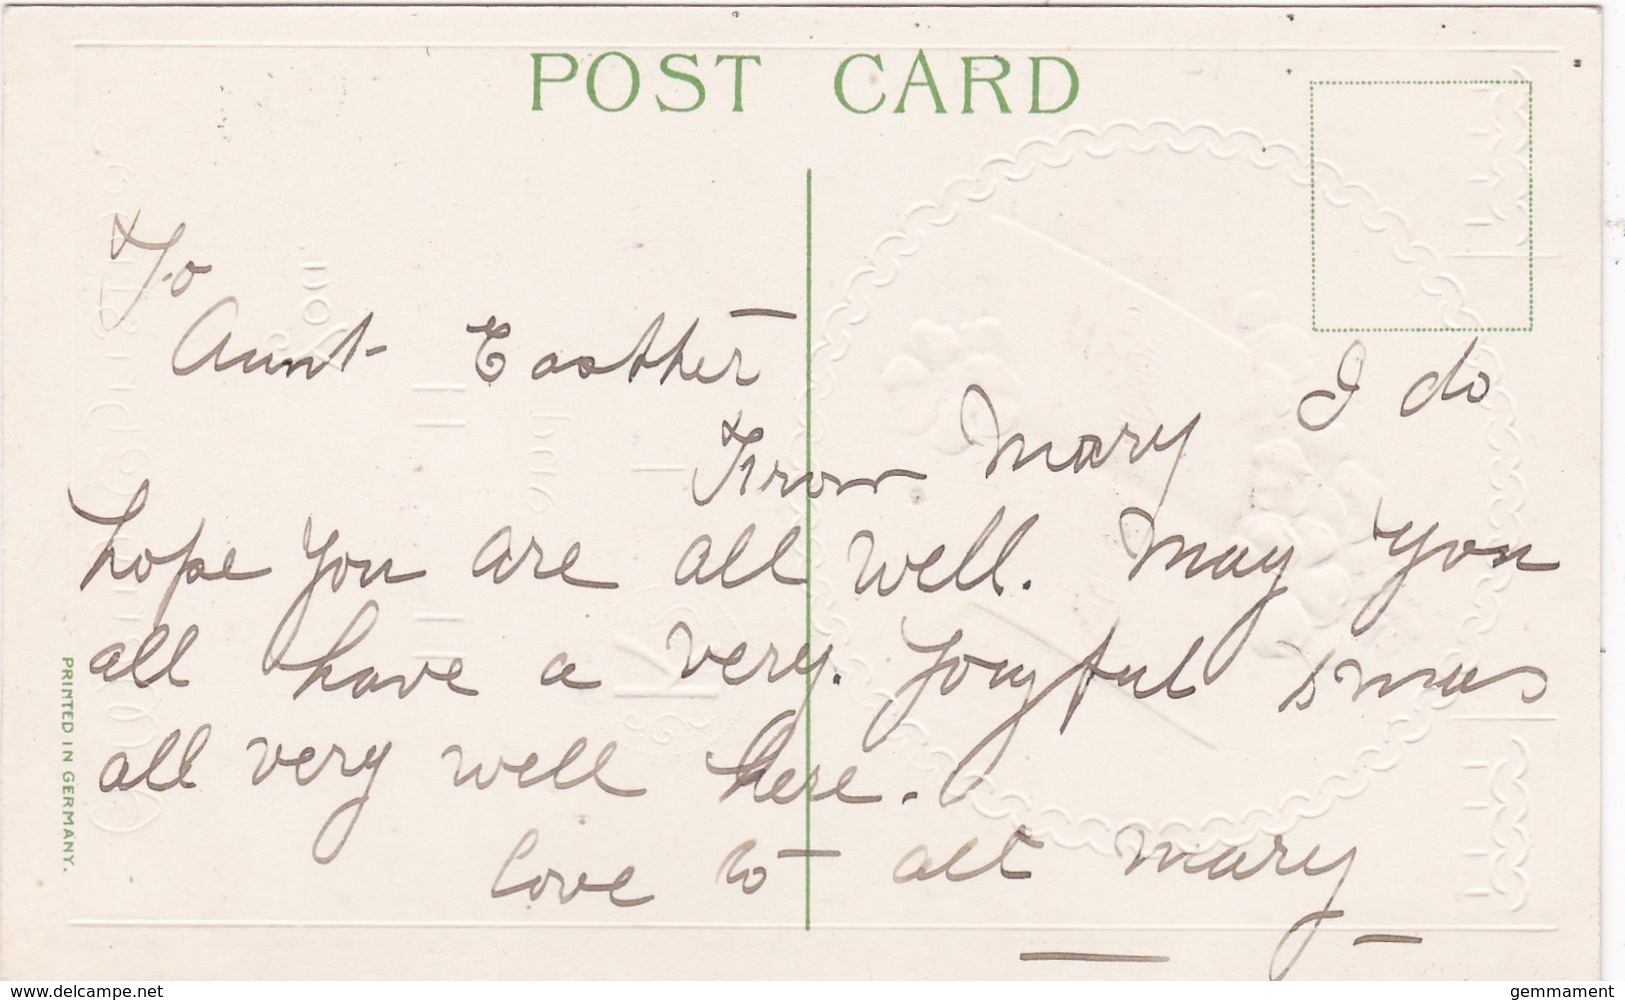 POST CARD
To
Aunt Easther
From Mary I do
hope you are all well. May you
all have a very. Jouyful xmus
all very well here.
love to all Mary
PRINTED IN GERMANY.
www.delcampe.net
gemmament